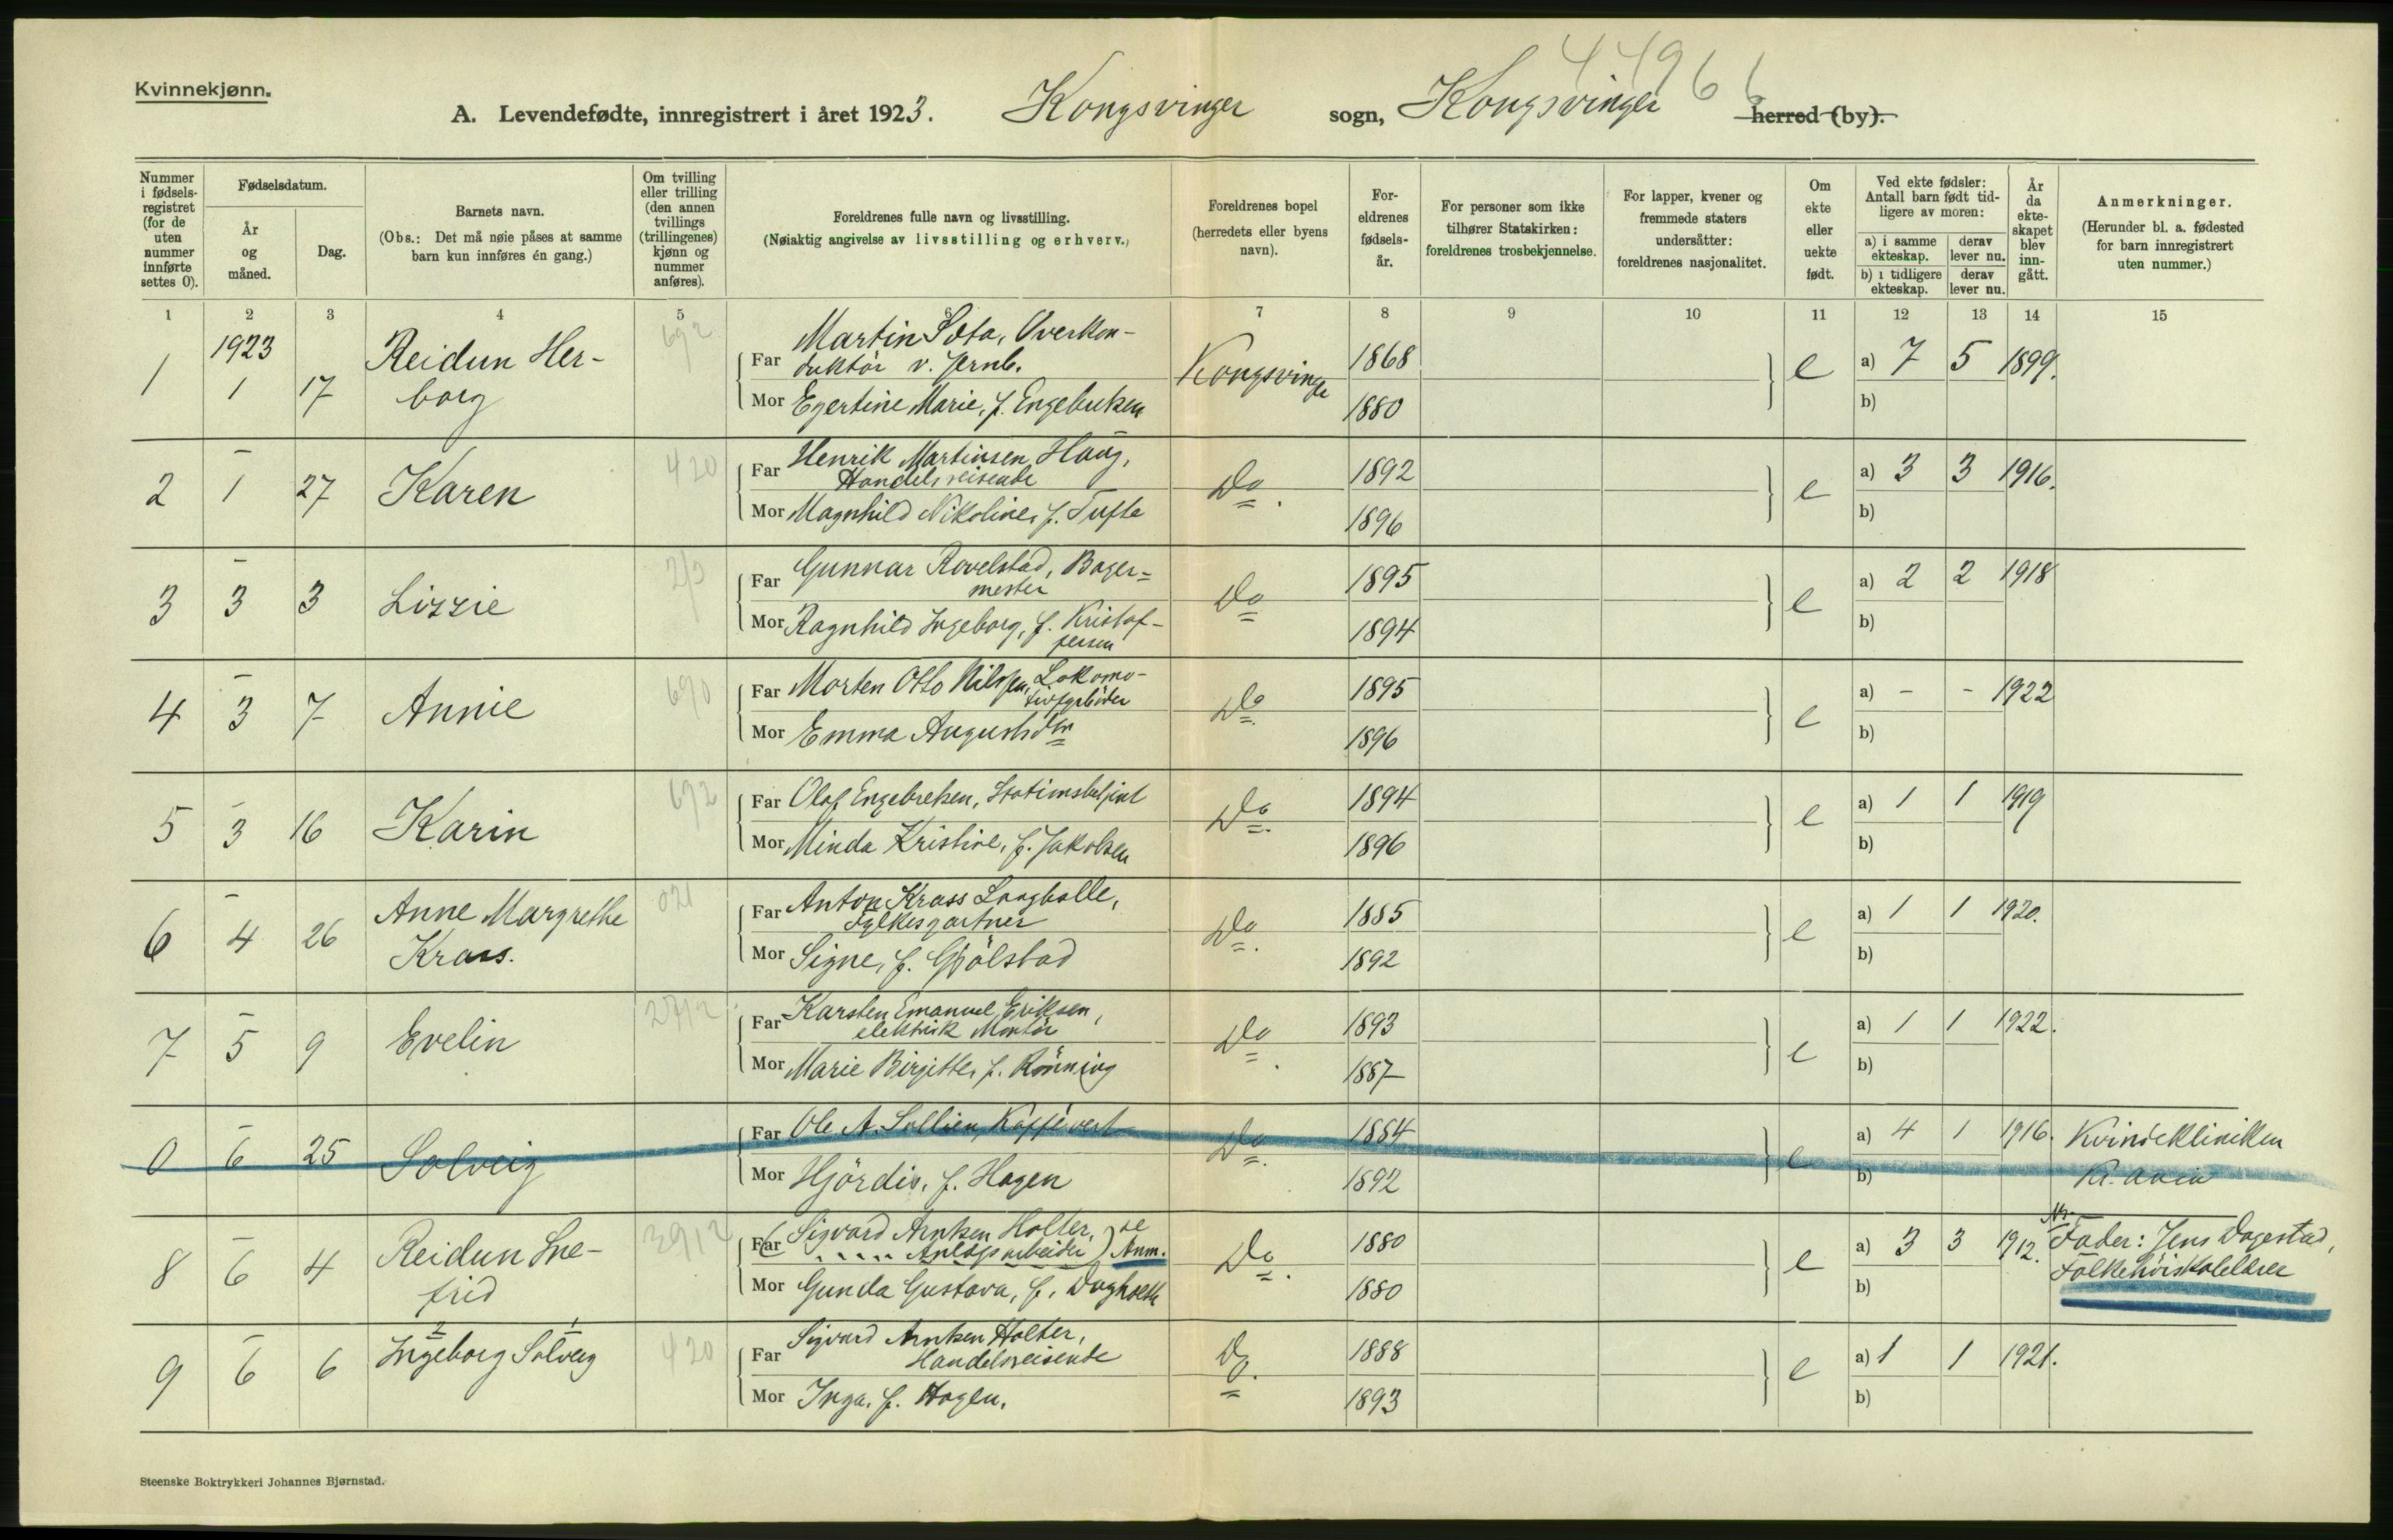 4496 6
Kvinnekjønn.
A. Levendefødte, innregistrert i året 1923. Kongsvinger sogn, Kongsvinger herred (by).
Nummer i fødsels-registret (for de uten nummer innførte settes 0).
Fødselsdatum.
År og måned.
Dag.
Barnets navn.
(Obs.: Det må nøie påses at samme barn kun innføres én gang.)
Om tvilling eller trilling (den annen tvillings (trillingenes) kjønn og nummer anføres).
Foreldrenes fulle navn og livsstilling.
(Nøiaktig angivelse av livsstilling og erhverv.)
Foreldrenes bopel (herredets eller byens navn).
For-eldrenes fødsels-år.
For personer som ikke tilhører Statskirken: foreldrenes trosbekjennelse.
For lapper, kvener og fremmede staters undersåtter: foreldrenes nasjonalitet.
Om ekte eller uekte født.
Ved ekte fødsler: Antall barn født tid-ligere av moren:
a) i samme ekteskap.
derav lever nu.
b) i tidligere ekteskap.
derav lever nu.
År da ekte-skapet blev inn-gått.
Anmerkninger.
(Herunder bl. a. fødested for barn innregistrert uten nummer.)
1 2 3 4 5 6 7 8 9 10 11 12 13 14 15
1 1923 1 17 Reidun Her-
borg
692
Far Martin Sota, Overkon-
duktör v. Jernb.
Mor Egertine Marie, f. Engebretsen
Kongsvinger 1868
1880
e a) 7 5 1899.
b)
2 – 1 27 Karen 420
Far Henrik Martinsen Haug,
Handelsreisende
Mor Magnhild Nikoline, f. Tufte
Do. 1892
1896
e a) 3 3 1916.
b)
3 – 3 3 Lizzie
Far Gunnar Rovelstad, Bager=
mester
Mor Ragnhild Ingeborg, f. Kristof-
fersen
Do 1895
1894
e a) 2 2 1918
b)
4 – 3 7 Annie 690
Far Morten Otto Nilsen, Lokomo-
tivpubber
Mor Emma Augustsdtr
Do 1895
1896
e a) – – 1922
b)
5 – 3 16 Karin 692
Far Olaf Engebretsen, Stationsbetjent
Mor Minda Kristine, f. Jakobsen
Do. 1894
1896
e a) 1 1 1919
b)
6 – 4 26 Anne Margrethe
Krass.
021
Far Anton Krass Langballe,
Fylkesgartner
Mor Signe, f. Gjölstad
Do. 1885
1892
e a) 1 1 1920.
b)
7 – 5 9 Evelin 2712
Far Karsten Emanuel Eriksen,
elektrisk Montör
Mor Marie Birgitte, f. Rönning
Do. 1893
1887
e a) 1 1 1922.
b)
0 – 6 25 Solveig
Far Ole A. Sollien, Kaffevert
Mor Hjördis, f. Hagen
Do. 1884
1892
e a) 4 1 1916. Kvindekliniken
b) Kr.ania
8 – 6 4 Reidun Sne-
frid
3912
Far (Sigvard Arntsen Holter,
Anlægsarbeider) se Anm.
Mor Gunda Gustava, f. Dagholt
Do. 1880
1880
e a) 3 3 1912. Fader: Jens Dagestad,
Folkehöiskolelærer
b)
9 – 6 6 2 Ingeborg 1 Solveig 420
Far Sigvard Arntsen Holter,
Handelsreisende
Mor Inga, f. Hagen.
Do. 1888
1893
e a) 1 1 1921.
b)
Steenske Boktrykkeri Johannes Bjørnstad.